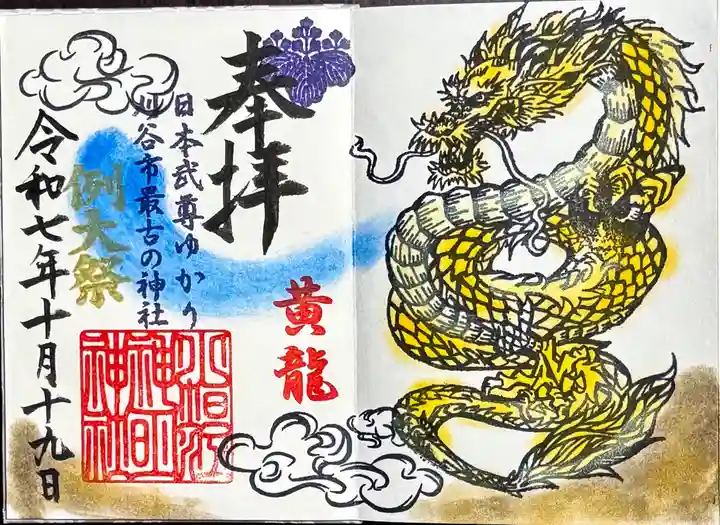 奉拝
黄龍
日本武尊ゆかり
刈谷市最古の神社
小垣江
神明
神社
例大祭
令和七年十月十九日